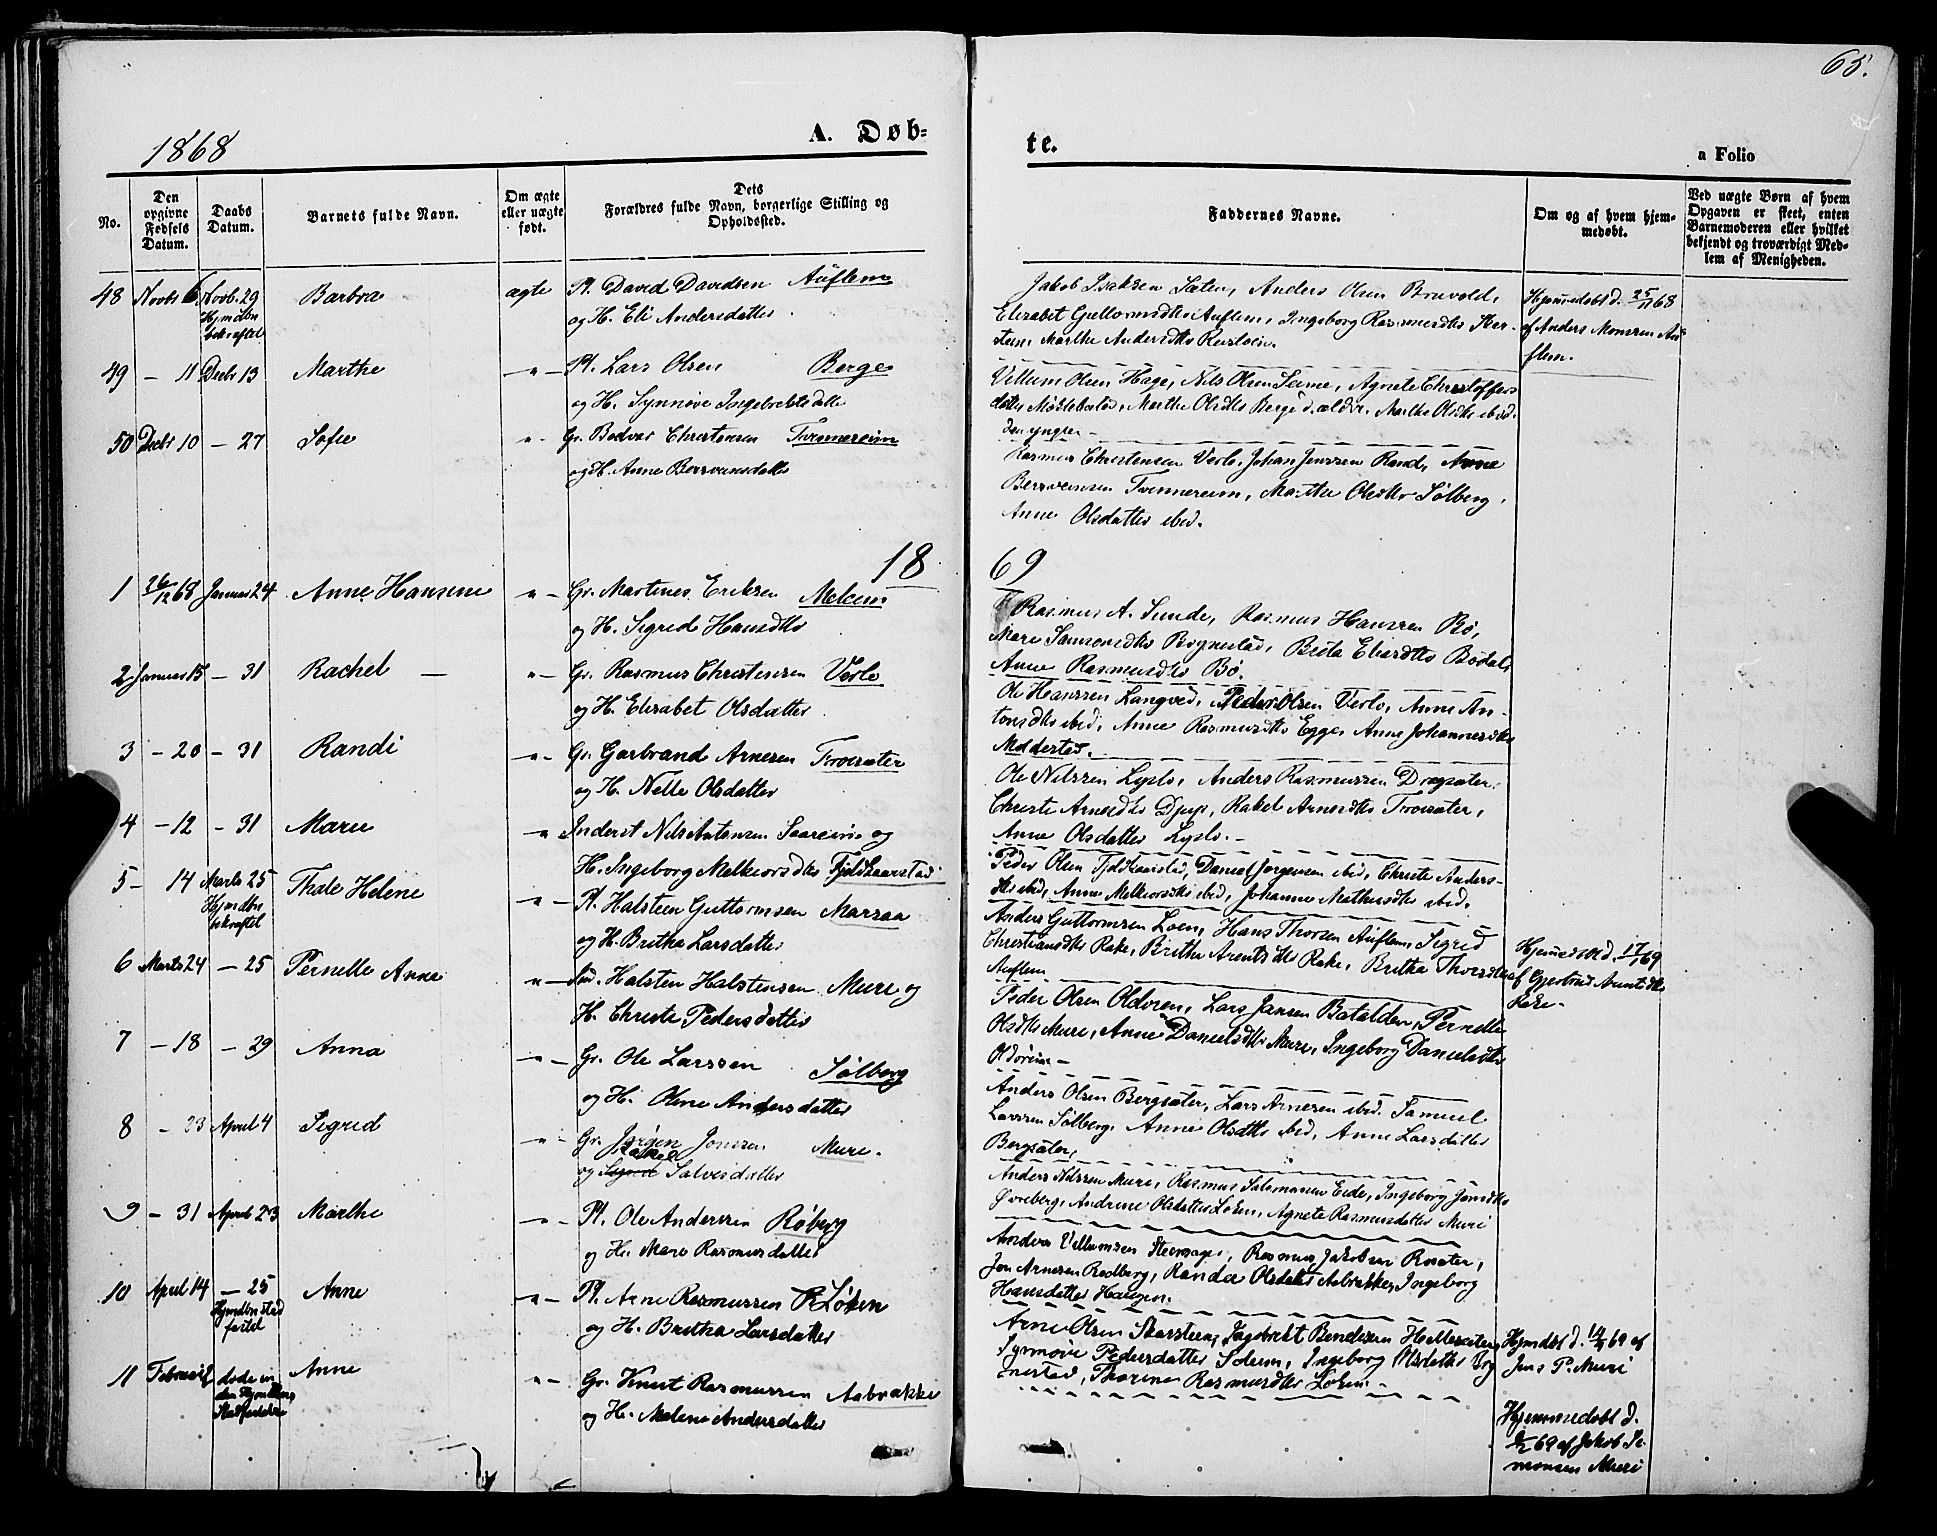 1868
A. Døb-
No.
Den opgivne Fødsels Datum.
Daabs Datum.
Barnets fulde Navn.
Om ægte eller uægte født.
Dets Forældres fulde Navn, borgerlige Stilling og Opholdssted.
48 Novbr 6 Novb. 29 Barbra ægte Pl. David Davidsen Auflem
Hjmdbn bekræftet og H. Eli Andersdatter
49 - 11 Decbr 13 Marthe -"- Pl. Lars Olsen Berge
og H. Synnøve Ingebrektsdatter
50 Decbr 10 - 27 Sofie "- Gr. Bodvar Christensen Tvennereim
og H. Anne Bersvensdatter
18
1 26/12 68 Januar 24 Anne Hansine -"- Gr. Martines Eriksen Melem
og H. Sigrid Hansdtr
2 Januar 15 - 31 Rachel - "- Gr. Rasmus Christensen Verlo
og H. Elisabet Olsdatter
3 - 20 - 31 Randi -"- Gr. Garbrand Arnesen Tvorsæter
og H. Nelle Olsdatter
4 - 12 - 31 Marie " Inderst Nils Antonsen Saareim og
H. Ingeborg Melkiorsdtr Fjeldkaarstad
5 - 14 Marts 25 Thale Helene -"- Pl. Halsteen Guttormsen Marsaa
Hjmdbn bekræftet og H. Britha Larsdatter
6 Marts 24 - 25 Pernelle Anne "- Ind. Halsten Halstensen Muri og
H. Christi Pedersdatter
7 - 18 - 29 Anna -"- Gr. Ole Larssen Sølberg
og H. Oline Andersdatter
8 - 23 April 4 Sigrid -"- Gr. Jørgen Jonssen Muri.
Rakel
og Sigrid Salvesdatter
9 - 31 April 23 Marthe -"- Pl. Ole Anderssen Røberg
og H. Mari Rasmusdatter
10 April 14 - 25 Anne -"- Pl. Arne Rasmussen Løken
Hjmdbn stadfæstet og H. Britha Larsdatter
11 Februar 2 døde in den Hjmdbns Stadfæstelse Anne "- Gr. Knut Rasmussen Aabrække
og H. Malene Andersdatter
65.
te.
a Folio
Faddernes Navne.
Om og af hvem hjemmedøbt.
Ved uægte Børn af hvem Opgaven er skeet, enten Barnemoderen eller hvilket bekjendt og troværdigt Medlem af Menigheden.
Jakob Isaksen Sæten, Anders Olsen Bruvold,
Elisabet Guttormsdtr Auflem, Ingeborg Rasmusdtr
Marthe Andersdtr
Hjemmedøbt d. 25/11 68
af Anders Monsen Auflem.
Villum Olsen Hage, Nils Olsen Seime, Agnete Christoffersdatter
Marthe Olsdtr Berge d. ældre, Marthe Olsdtr ibid.
den yngre -
Rasmus Christensen Verlo, Johan Jenssen Rand, Anne
Bersvensen Tvennereim, Marthe Olsdtr Sølberg,
Anne Olsdatter ibid.
69
Rasmus A. Sunde, Rasmus Hanssen Bø,
Mari Samsonsdtr Rognestad, Brita Eliasdtr Bødal,
Anne Rasmusdtr Bø.
Ole Hanssen Langved, Peder Olsen Verlo, Anne Antonsdtr
ibid, Anne Rasmusdtr Egge, Anne Johannesdtr
Meldestad.
Ole Nilssen Lyslo, Anders Rasmussen Dragsæter,
Christi Arnesdtr Djup, Rakel Arnesdtr Tvorsæter,
Anne Olsdatter Lyslo. -
Peder Olsen Fjeldkaarstad, Daniel Jørgensen ibid, Christi Andersdtr
ibid, Anne Melkiorsdtr ibid, Johanne Mathiasdtr ibid.
Anders Guttormsen Loen, Hans Thorsen Auflem, Sigrid
Christiansdtr Rake, Brithe Arentsdtr Rake, Britha Thorsdtr
Auflem
Hjemmedøbt d. 17/1 69
af Gjertrud Arentsdtr
Rake -
Peder Olsen Oldøren, Lars Jansen Batalden, Pernelle
Olsdtr Muri, Anne Danielsdtr Muri, Ingeborg Danielsdtr
Oldøren -
Anders Olsen Bergsæter, Lars Arnesen ibid. Samuel
Larssen Sølberg, Anne Olsdtr ibid, Anne Larsdatter
Bergsæter,
Anders Nilssen Muri, Rasmus Salamonsen Eide, Ingeborg Jonsdtr
Øvreberg, Andrine Olsdatter Løken, Agnete Rasmusdatter Muri
Anders Villumsen Rasmus Jakobsen
Jon Arnesen Rødberg, Randi Olsdatter Aabrække, Ingeborg
Hansdatter Haugen.
Arne Olsen Skarstein, Ingebrikt Bendixen
Synnøve Pedersdatter Solem, Ingeborg Olsdatter
Thorine Rasmusdtr Løken -
Hjmdøbt d. 14/4 69 af
Jens P. Muri
Hjemmedøbt d.
2/2 69 af Jakob Simonsen
Muri